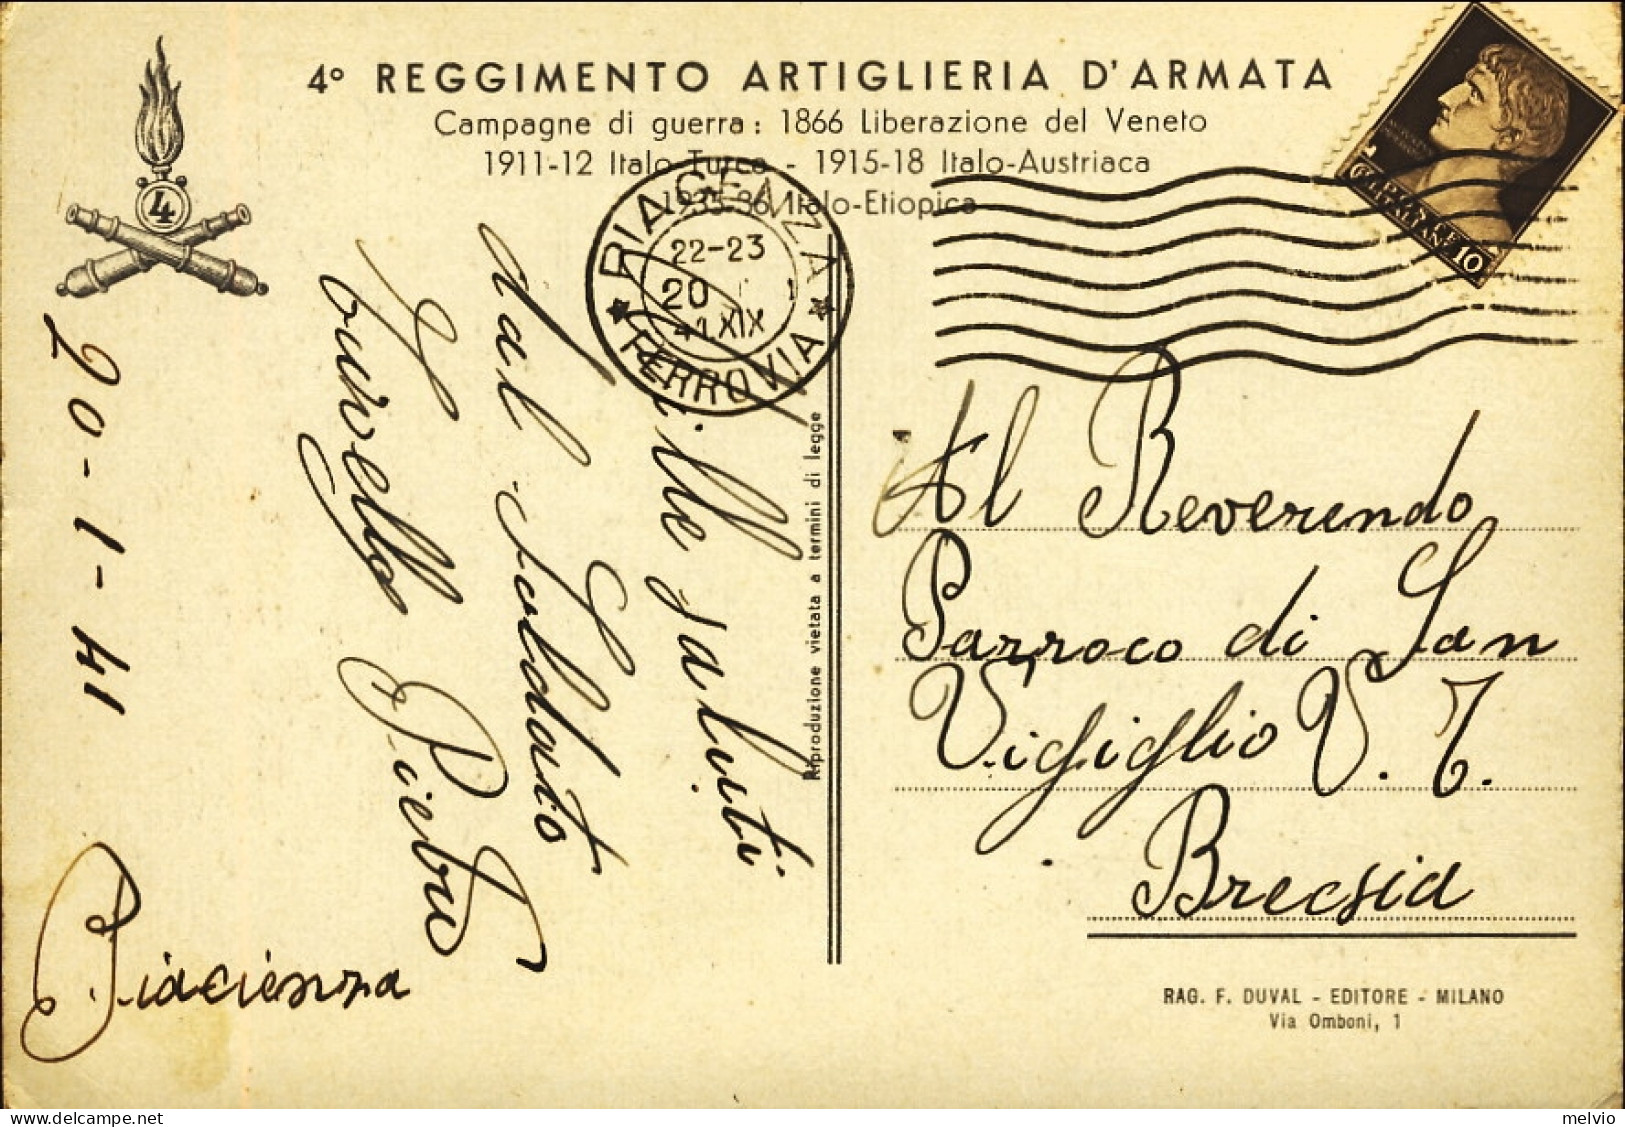 4° REGGIMENTO ARTIGLIERIA D'ARMATA
Campagne di guerra: 1866 Liberazione del Veneto
1911-12 Italo-Turca - 1915-18 Italo-Austriaca
1935-36 Italo-Etiopica
4
PIACENZA
22-23
20 1
41 XIX
FERROVIA
POSTE
ITALIANE
10
Mille saluti
dal Soldato
Pietro
20-1-41
Piacienza
Riproduzione vietata a termini di legge
Al Reverendo
Parroco di San
Vigiglio V. T.
Brecsia
RAG. F. DUVAL - EDITORE - MILANO
Via Omboni, 1
melvio